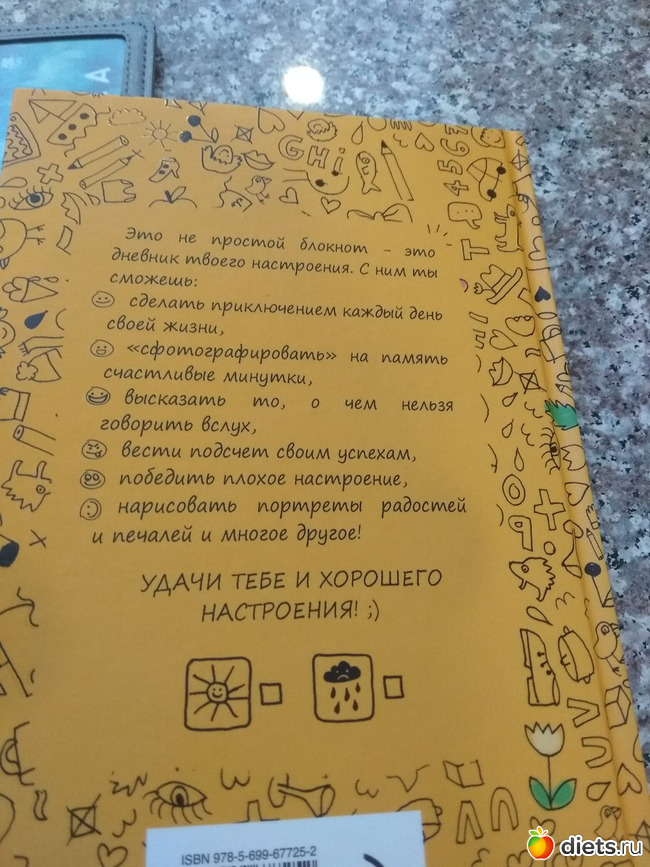 A
GHi
4567
T
Это не простой блокнот – это
дневник твоего настроения. С ним ты
сможешь:
сделать приключением каждый день
своей жизни,
«сфотографировать» на память
счастливые минутки,
высказать то, о чем нельзя
говорить вслух,
вести подсчет своим успехам,
победить плохое настроение,
нарисовать портреты радостей
и печалей и многое другое!
УДАЧИ ТЕБЕ И ХОРОШЕГО
НАСТРОЕНИЯ! ;)
ISBN 978-5-699-67725-2
diets.ru